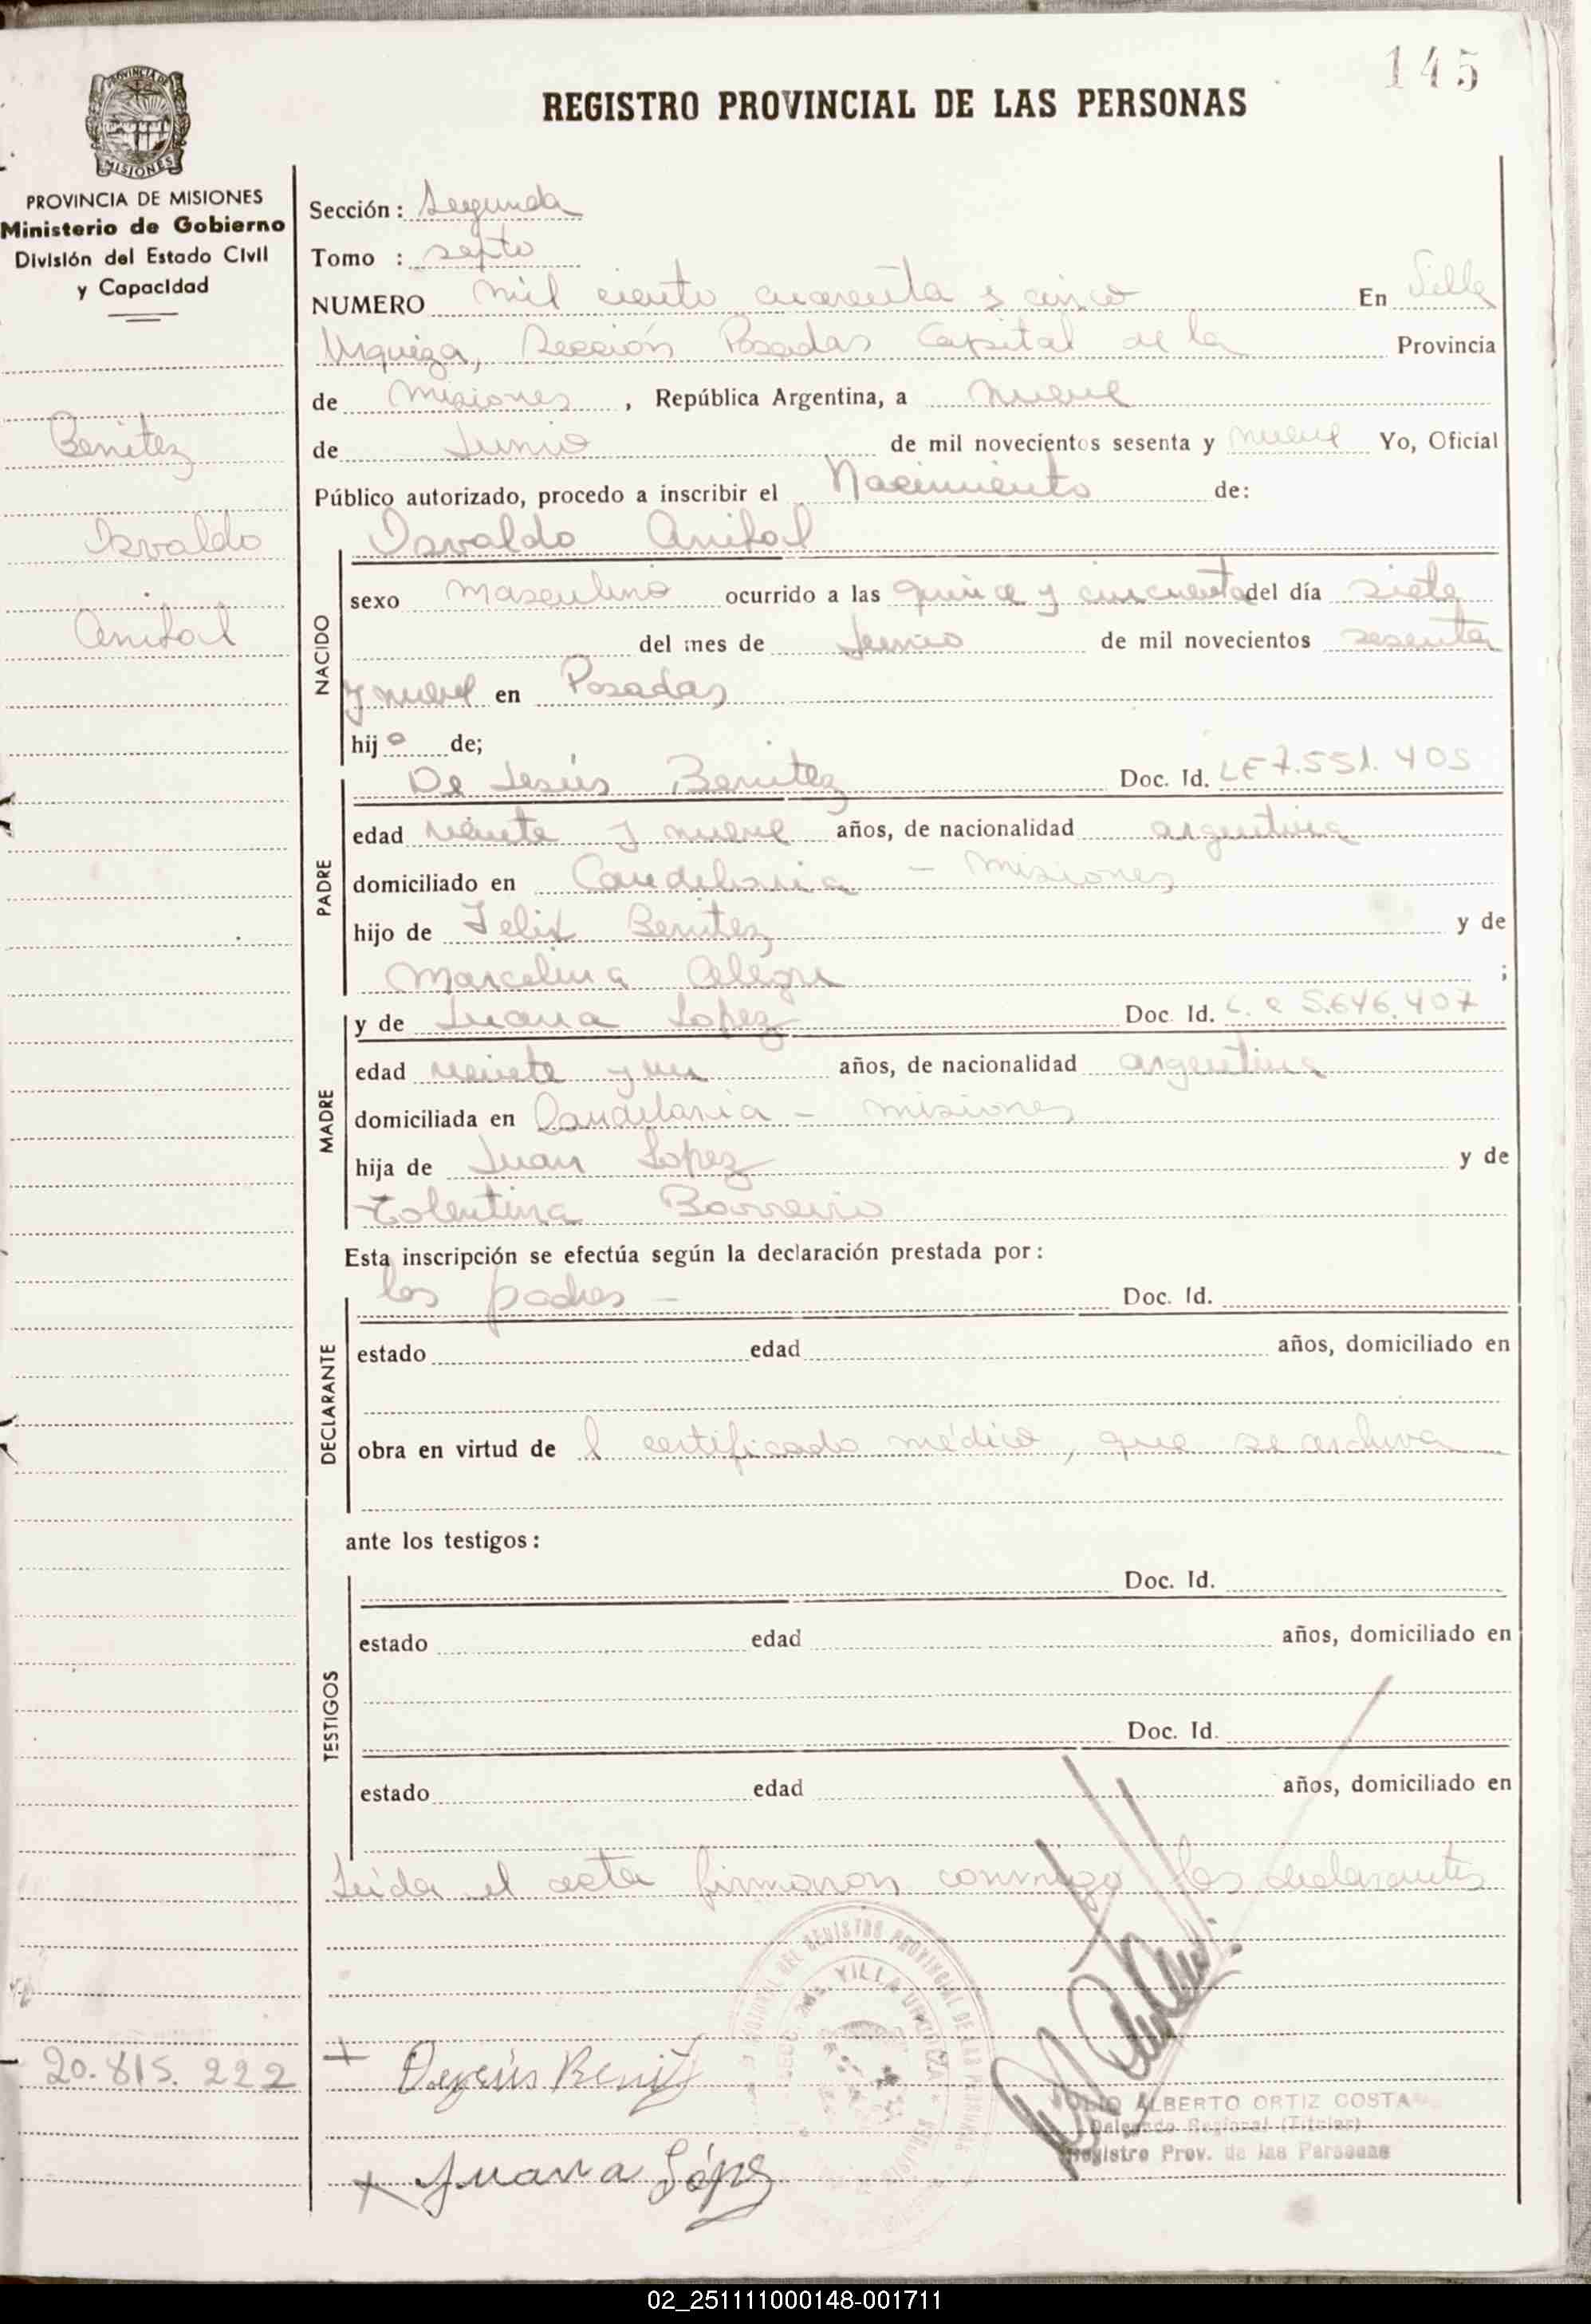 145
REGISTRO PROVINCIAL DE LAS PERSONAS
PROVINCIA DE MISIONES
PROVINCIA DE MISIONES
Ministerio de Gobierno
División del Estado Civil
y Capacidad
Benitez
Osvaldo
Anibal
20.815.222
Sección: Segunda
Tomo :
NUMERO mil ciento cuarenta y cinco En Villa
Urquiza, Sección Posadas Capital de la Provincia
de Misiones, República Argentina, a nueve
de Junio de mil novecientos sesenta y nueve Yo, Oficial
Público autorizado, procedo a inscribir el Nacimiento de:
Osvaldo Anibal
NACIDO
sexo masculino ocurrido a las quince y cincuenta del día siete
del mes de Junio de mil novecientos sesenta
y nueve en Posadas
hijo de;
PADRE
De Jesús Benitez Doc. Id. LE 7.551.405
edad veinte y nueve años, de nacionalidad argentina
domiciliado en Candelaria - Misiones
hijo de Felix Benitez y de
Marcelina Alegre ;
MADRE
y de Juana Lopez Doc. Id. L. C 5.646.407
edad veinte y un años, de nacionalidad argentina
domiciliada en Candelaria - misiones
hija de Juan Lopez y de
Tolentina Barreiro
Esta inscripción se efectúa según la declaración prestada por:
DECLARANTE
los padres - Doc. Id.
estado edad años, domiciliado en
obra en virtud de l certificado médico, que se archiva
ante los testigos:
TESTIGOS
Doc. Id.
estado edad años, domiciliado en
Doc. Id.
estado edad años, domiciliado en
Leida el acta firmaron conmigo los declarantes
REGISTRO PROVINCIAL DE LAS PERSONAS
VILLA URQUIZA
Dejesús Benit
Juana López
ALBERTO ORTIZ COSTA
Delegado Regional (Titular)
Registro Prov. de las Personas
02_251111000148-001711